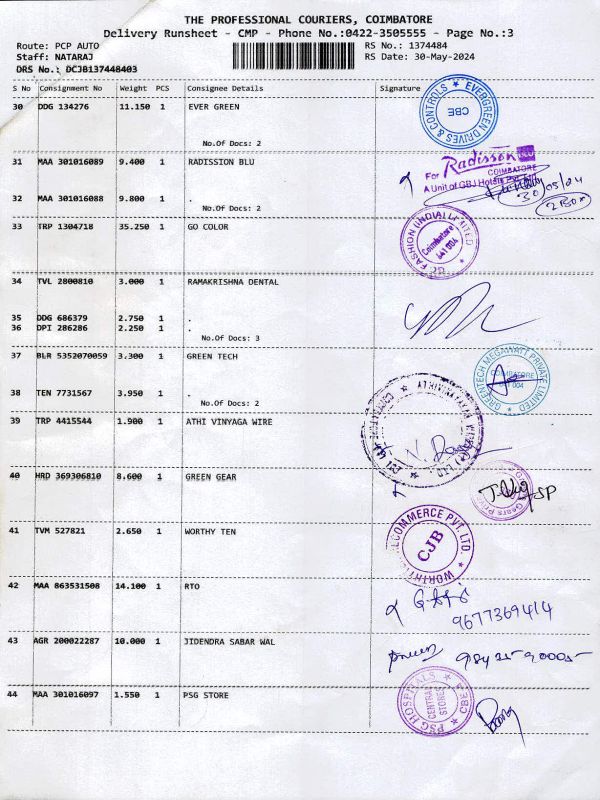 THE PROFESSIONAL COURIERS, COIMBATORE
Delivery Runsheet - CMP - Phone No.:0422-3505555 - Page No.:3
Route: PCP AUTO RS No.: 1374484
Staff: NATARAJ RS Date: 30-May-2024
DRS No.: DCJB137448403
S No Consignment No Weight PCS Consignee Details Signature
30 DDG 134276 11.150 1 EVER GREEN
EVERGREEN DRIVES & CONTROLS CBE
No.Of Docs: 2
31 MAA 301016089 9.400 1 RADISSION BLU
For Radisson BLU
COIMBATORE
A Unit of GBJ Hotels Pvt Ltd
30/05/24
32 MAA 301016088 9.800 1 .
2 Box
No.Of Docs: 2
33 TRP 1304718 35.250 1 GO COLOR
FASHION (INDIA) LIMITED
Coimbatore
641 004
34 TVL 2800810 3.000 1 RAMAKRISHNA DENTAL
35 DDG 686379 2.750 1 .
36 DPI 286286 2.250 1 .
No.Of Docs: 3
37 BLR 5352070059 3.300 1 GREEN TECH
GREENTECH MEGAWATT PRIVATE LIMITED
COIMBATORE
38 TEN 7731567 3.950 1 .
No.Of Docs: 2
39 TRP 4415544 1.900 1 ATHI VINYAGA WIRE
40 HRD 369306810 8.600 1 GREEN GEAR
41 TVM 527821 2.650 1 WORTHY TEN
COMMERCE PVT. LTD.
CJB
42 MAA 863531508 14.100 1 RTO
9677369414
43 AGR 200022287 10.000 1 JIDENDRA SABAR WAL
44 MAA 301016097 1.550 1 PSG STORE
PSG HOSPITALS CBE
CENTRAL
STORES